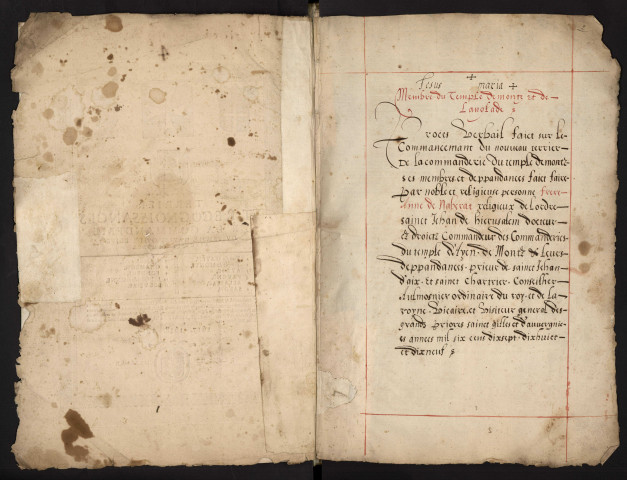 Jesus + maria +
Membre du Temple de montz et de
Langlade
Proces Verbail faict sur le
Commancemant du nouveau terrier
de la commanderie du temple de montz
ses membres et deppandances faict faire
par noble et religieuse personne Frere
Anne de Naberat religieux de lordre
sainct Jehan de Hierusalem docteur
et droictz Commandeur des Commanderies
du temple d'Ayen de Montz & leurs
deppandances prieur de sainct Jehan
d'aix et sainct Christoer Conseilher
Aulmosnier ordinaire du roy et de la
royne Vicaire et Visiteur general des
grands prieures sainct gilles et d'auvergnie
es annees mil six cens dixsept dixhuict
et dixneuf